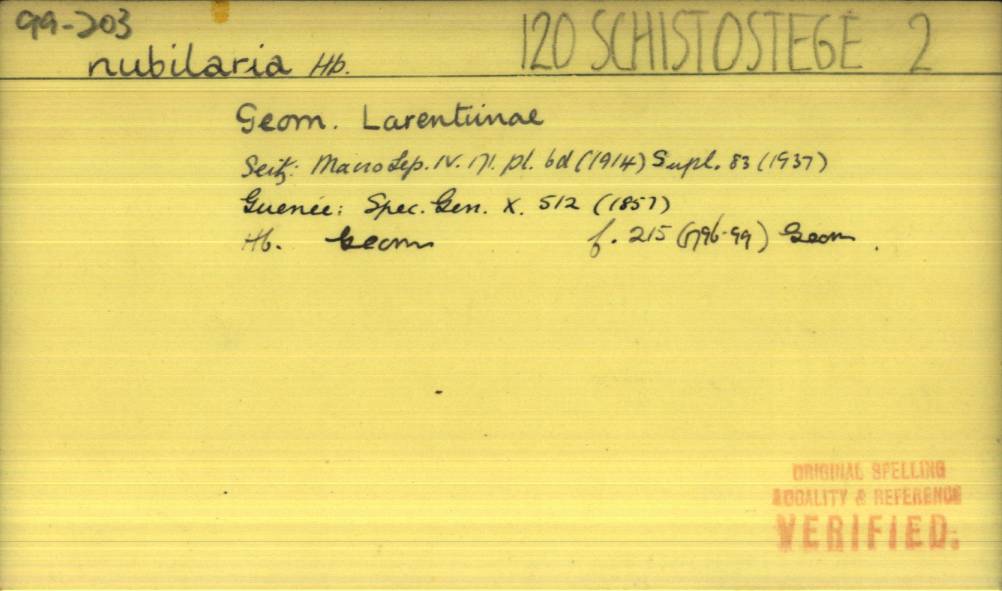 99-203
nubilaria Hb. 120 SCHISTOSTEGE 2
Geom. Larentiinae
Seitz: Macro Lep. IV. 171. pl. 6d (1914) Supl. 83 (1937)
Guenée: Spec. Gen. X. 512 (1857)
Hb. Geom f. 215 (1796-99) Geom.
ORIGINAL SPELLING
LOCALITY & REFERENCE
VERIFIED.